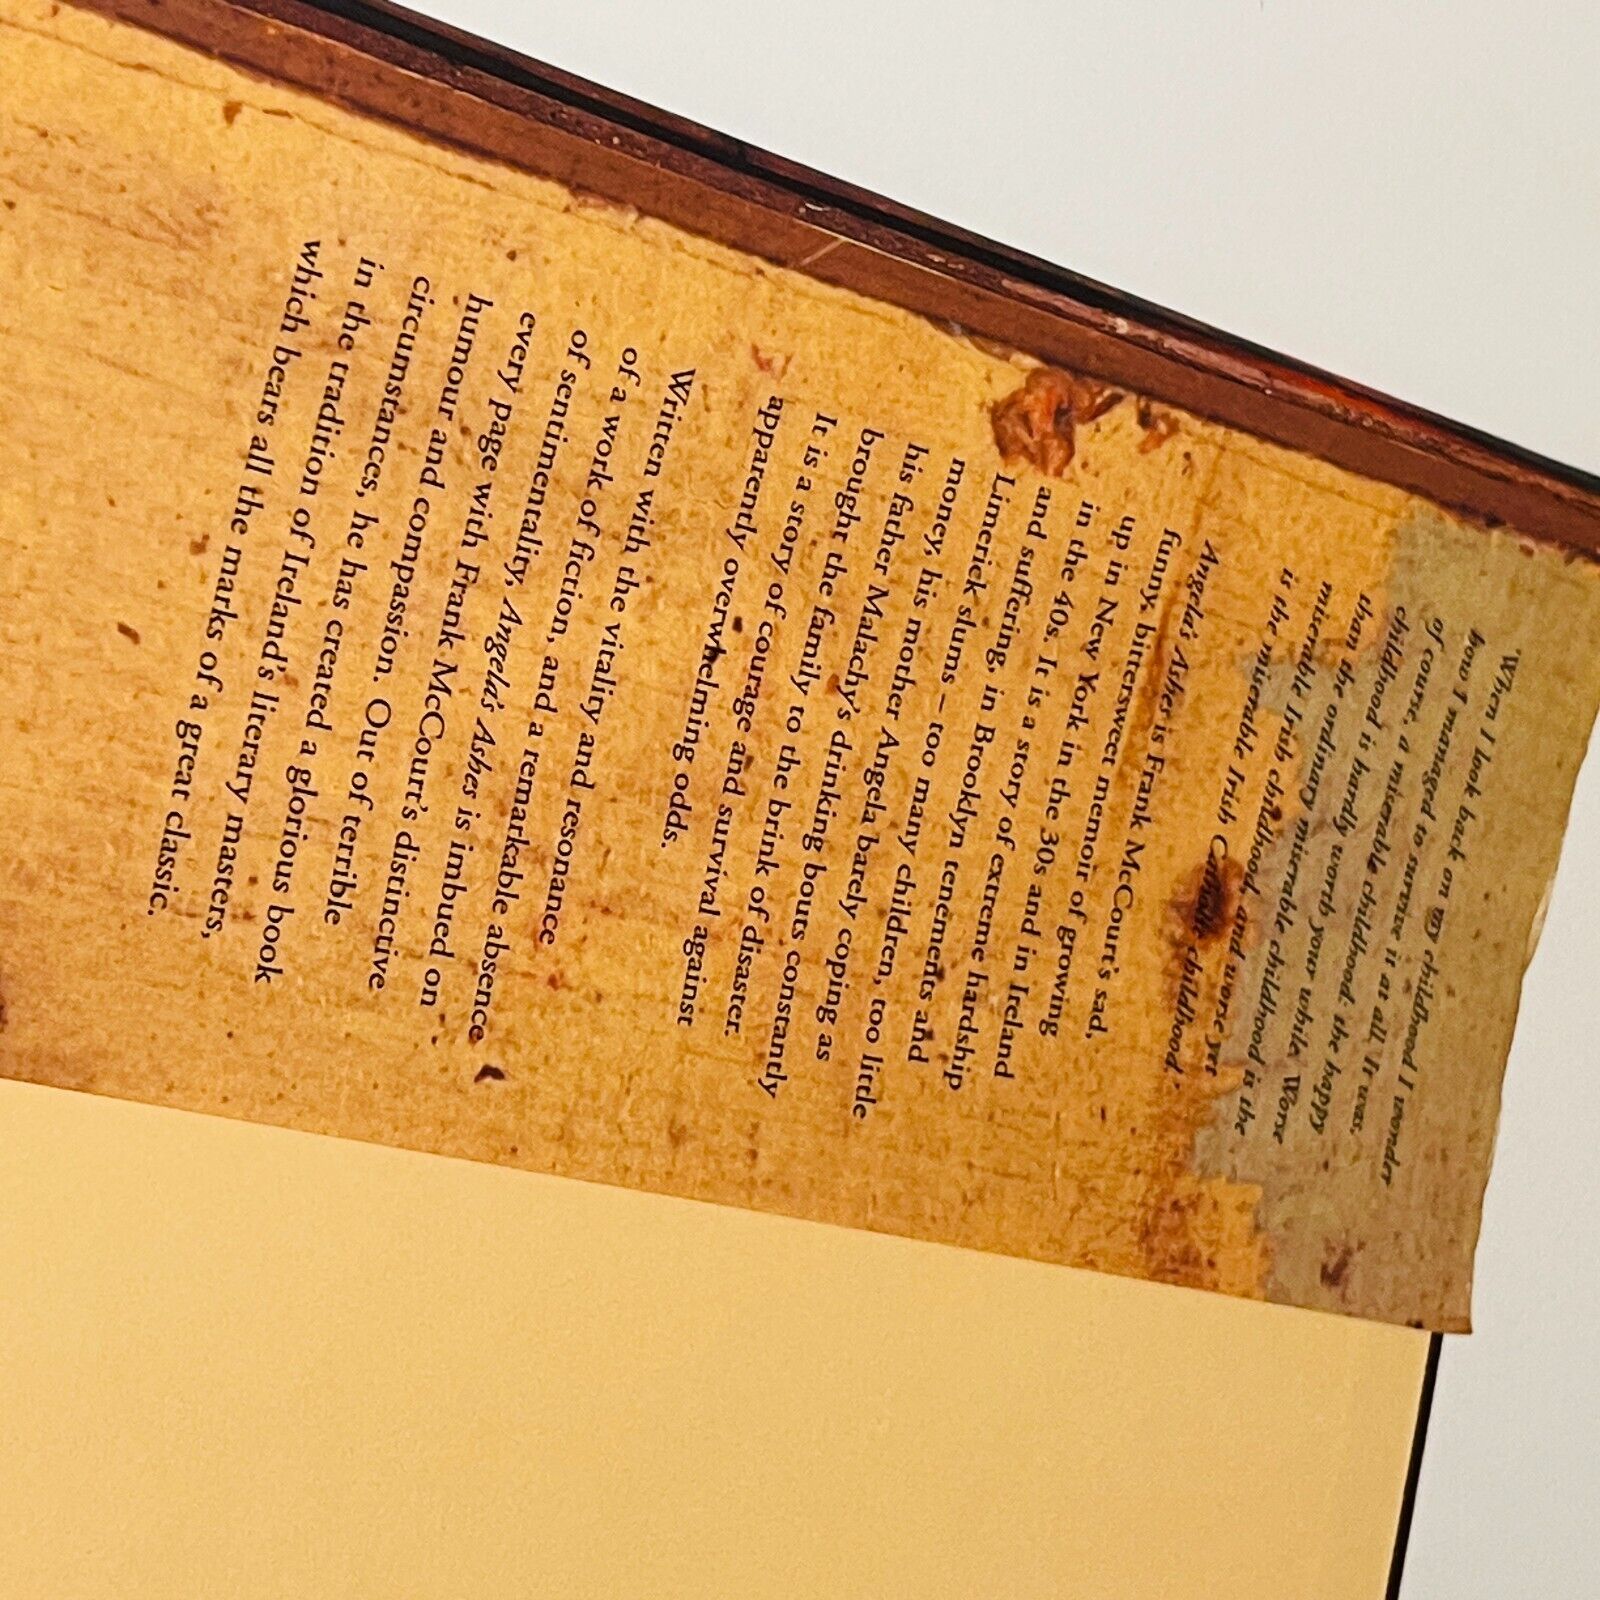 'When I look back on my childhood I wonder
how I managed to survive it at all. It was,
of course, a miserable childhood: the happy
childhood is hardly worth your while. Worse
than the ordinary miserable childhood is the
miserable Irish childhood, and worse yet
is the miserable Irish Catholic childhood.'
Angela's Ashes is Frank McCourt's sad,
funny, bittersweet memoir of growing
up in New York in the 30s and in Ireland
in the 40s. It is a story of extreme hardship
and suffering, in Brooklyn tenements and
Limerick slums – too many children, too little
money, his mother Angela barely coping as
his father Malachy's drinking bouts constantly
brought the family to the brink of disaster.
It is a story of courage and survival against
apparently overwhelming odds.
Written with the vitality and resonance
of a work of fiction, and a remarkable absence
of sentimentality, Angela's Ashes is imbued on
every page with Frank McCourt's distinctive
humour and compassion. Out of terrible
circumstances, he has created a glorious book
in the tradition of Ireland's literary masters,
which bears all the marks of a great classic.